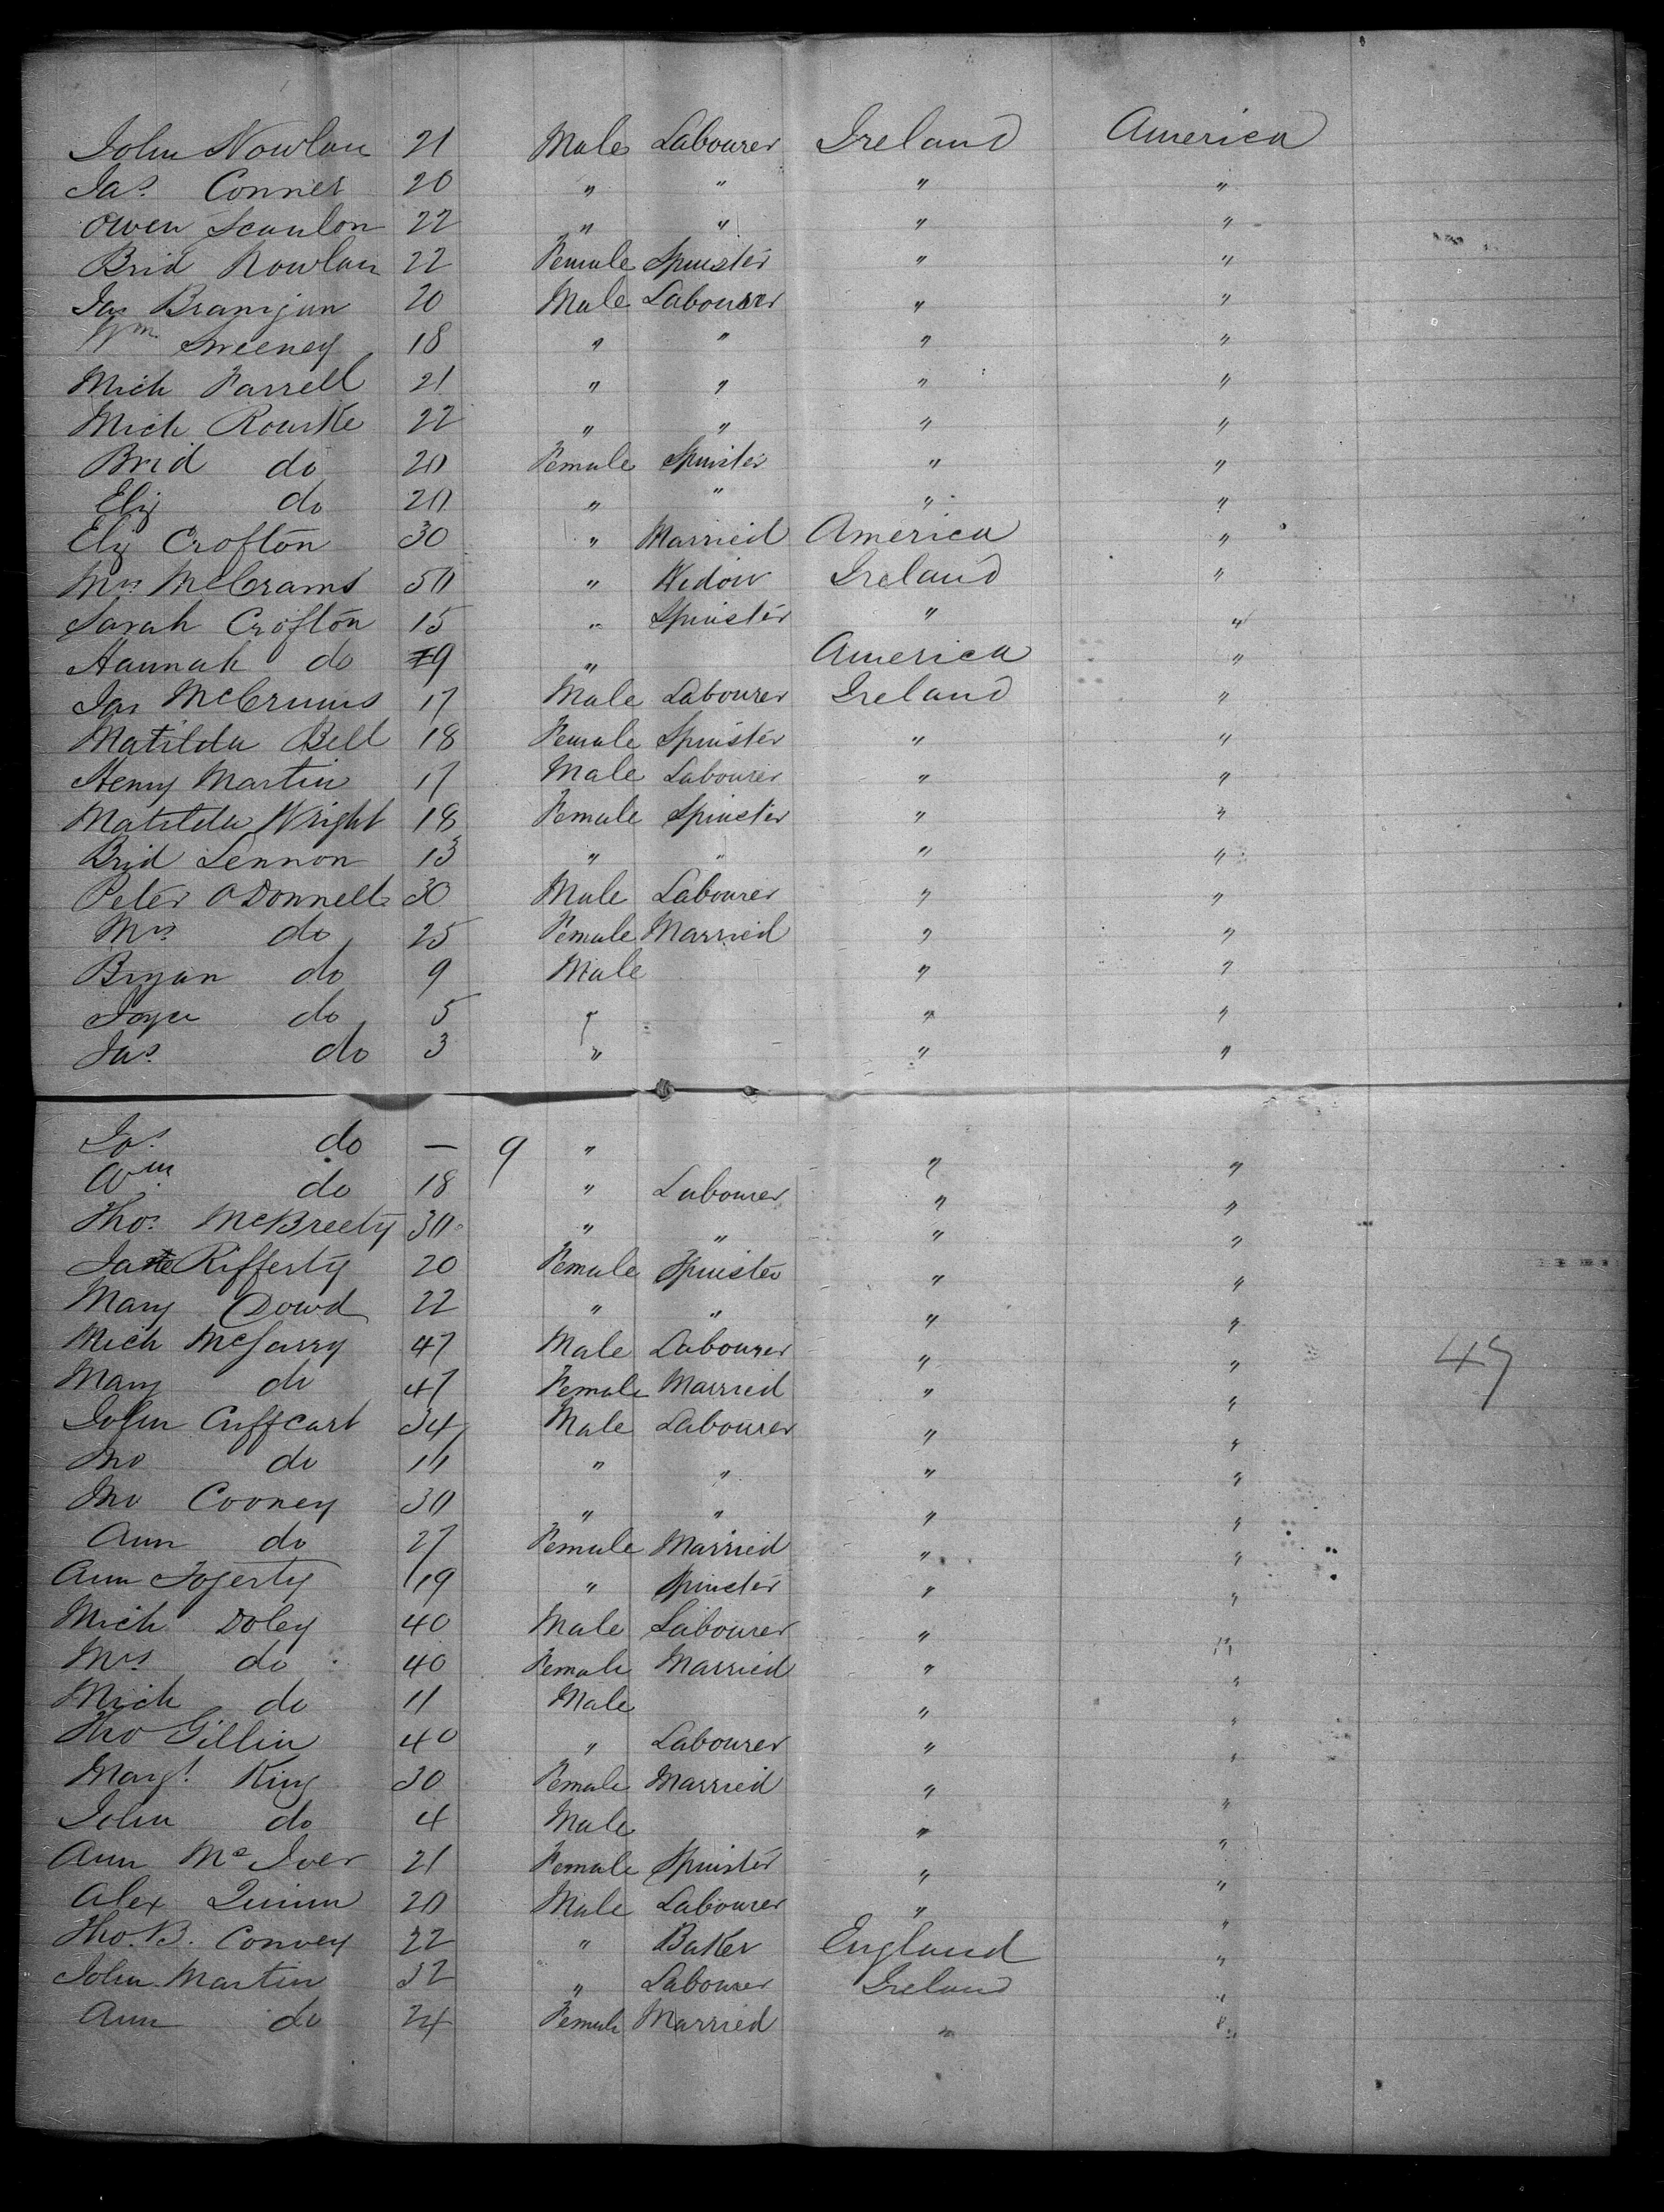 John Nowlan 21 Male Labourer Ireland America
Jas. Conner 20 " " " "
Owen Scanlon 22 " " " "
Brid Rowlan 22 Female Spinster " "
Jas Branijan 20 Male Labourer " "
Wm Sweeney 18 " " " "
Mich Farrell 21 " " " "
Mich Rourke 22 " " " "
Brid do 20 Female Spinster " "
Eliz do 20 " " " "
Elz Crofton 30 " Married America "
Mrs McCrams 50 " Widow Ireland "
Sarah Crofton 15 " Spinster " "
Hannah do 9 " America "
Jas McCrums 17 Male Labourer Ireland "
Matilda Bell 18 Female Spinster " "
Henry Martin 17 Male Labourer " "
Matilda Wright 18 Female Spinster " "
Brid Lennon 13 " " " "
Peter O'Donnell 30 Male Labourer " "
Mrs do 25 Female Married " "
Bryan do 9 Male " "
do 5 " " "
Jas. do 3 " " "
Jos. do — 9 " " "
Wm. do 18 " Labourer " "
Thos. McBreety 30 " " " "
Jane Rifferty 20 Female Spinster " "
Mary Dowd 22 " " " "
Mich McGarry 47 Male Labourer " " 47
Mary do 47 Female Married " "
John Cuffcart 34 Male Labourer " "
Tho do " " " "
Tho Cooney 30 " " " "
Ann do 27 Female Married " "
Ann Fogerty 19 " Spinster " "
Mich Doley 40 Male Labourer " "
Mrs do 40 Female Married " "
Mich do 11 Male " "
Tho Gillin 40 " Labourer " "
Margt. King 30 Female Married " "
John do 4 Male " "
Ann McIver 21 Female Spinster " "
Alex Quinn 20 Male Labourer " "
Tho. B. Convey 22 " Baker England "
John Martin 32 " Labourer Ireland "
Ann do 24 Female Married " "